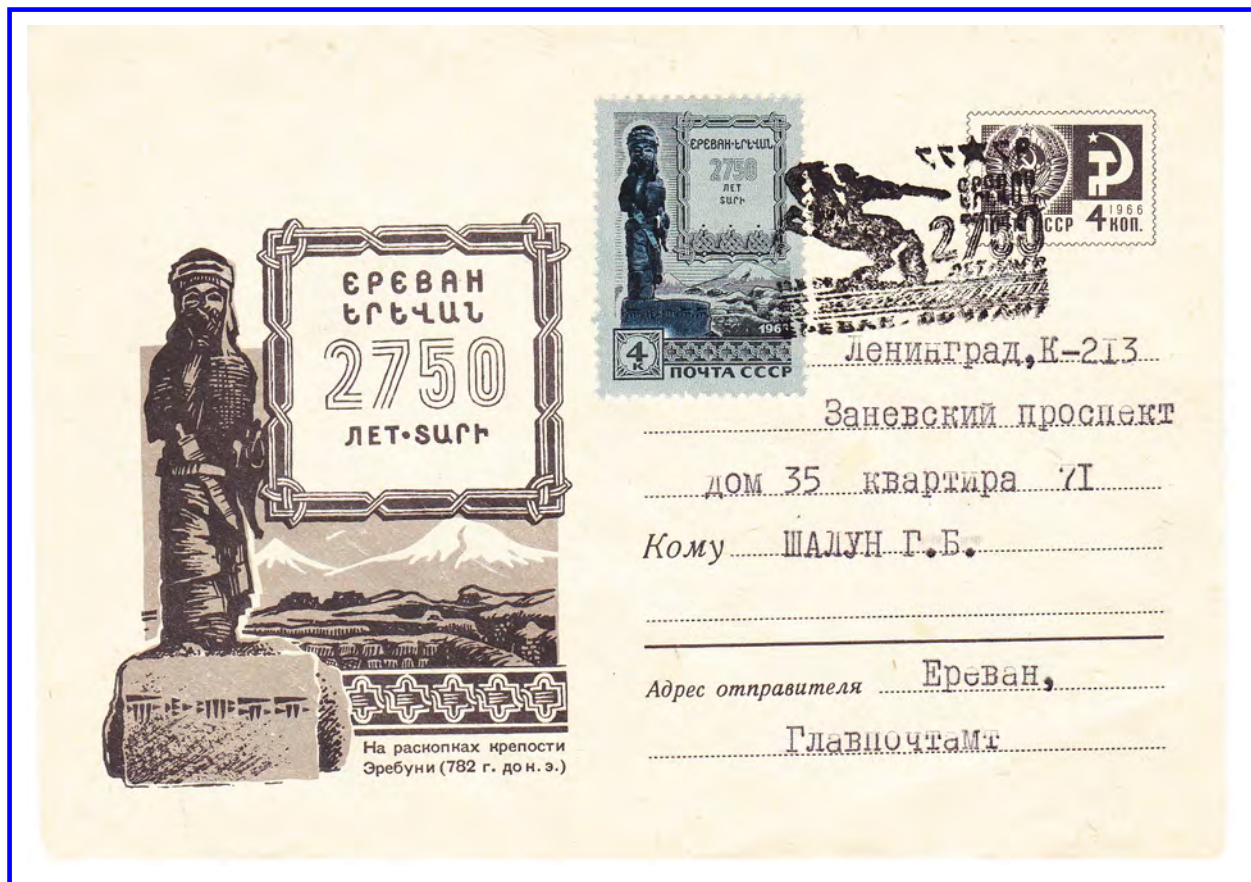 ЕРЕВАН
ԵՐԵՎԱՆ
2750
ЛЕТ•ՏԱՐԻ
На раскопках крепости
Эребуни (782 г. до н. э.)
ЕРЕВАН•ԵՐԵՎԱՆ
2750
ЛЕТ
ՏԱՐԻ
4
К
ПОЧТА СССР
2750
1966
4 КОП.
Ленинград, К-213
Заневский проспект
дом 35 квартира 71
Кому ШАЛУН Г.Б.
Адрес отправителя Ереван,
Главпочтамт